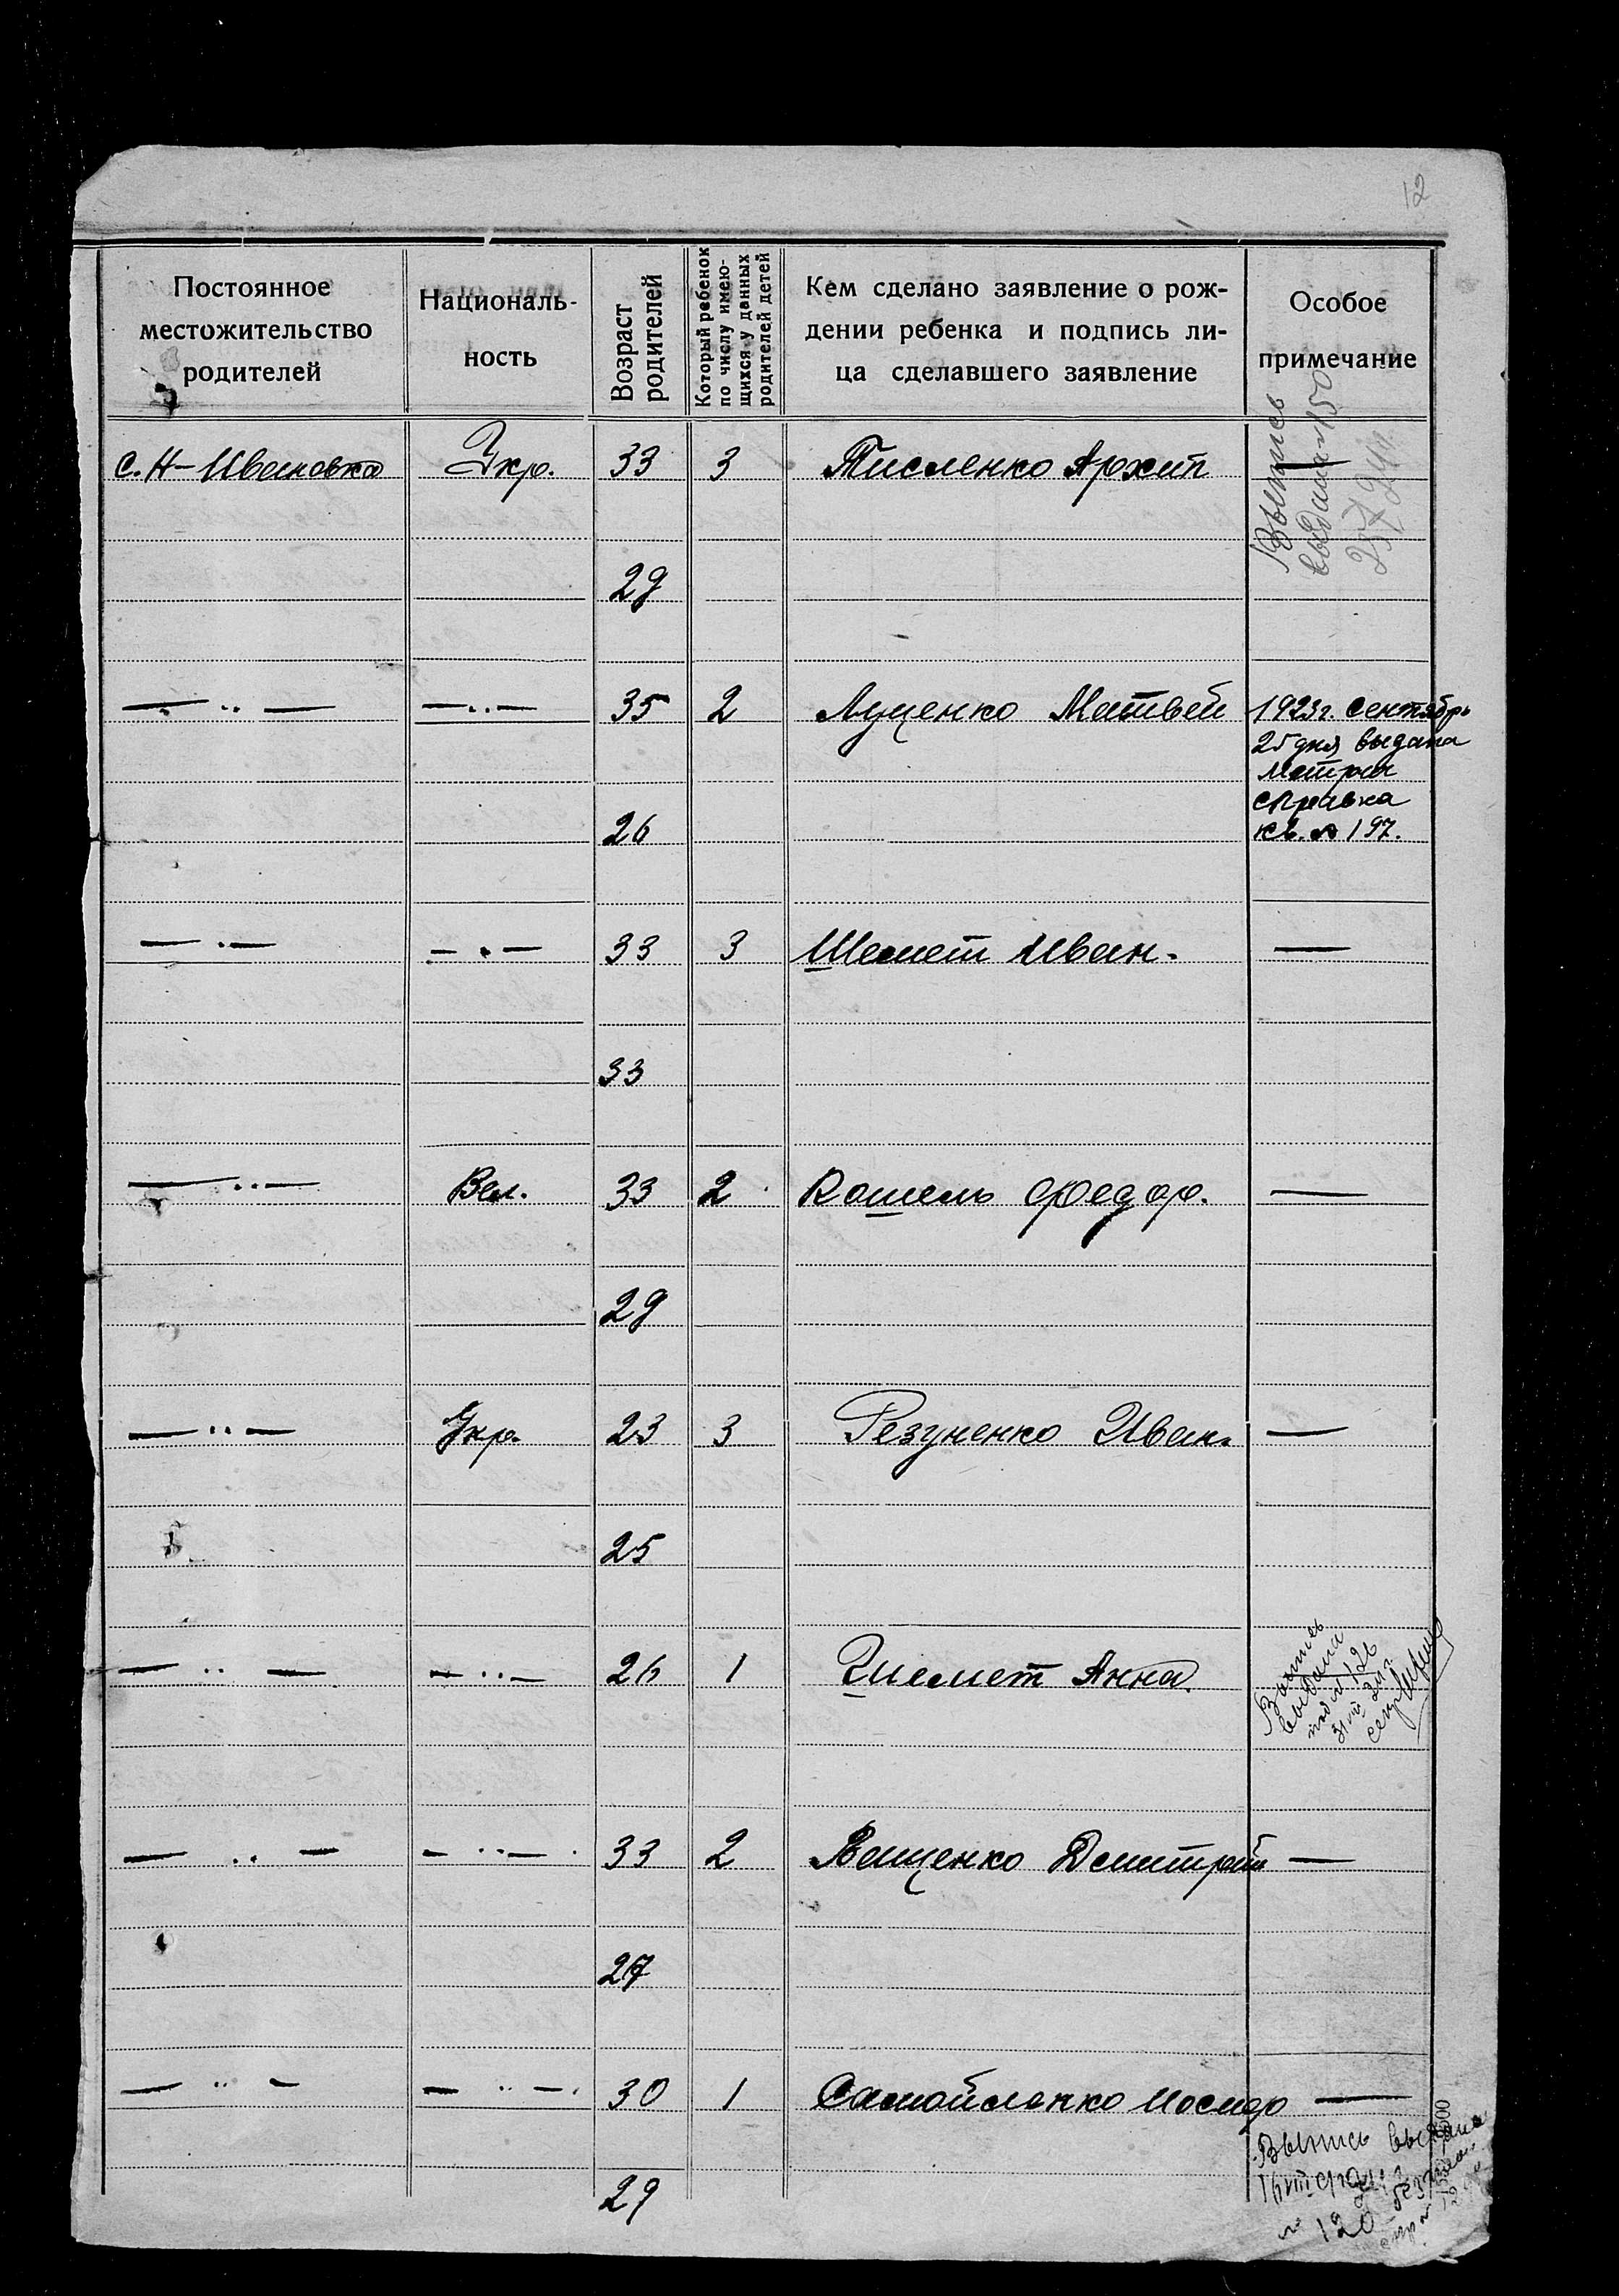 12
Постоянное
местожительство
родителей
Националь-
ность
Возраст
родителей
Который ребенок
по числу имею-
щихся у данных
родителей детей
Кем сделано заявление о рож-
дении ребенка и подпись ли-
ца сделавшего заявление
Особое
примечание
с. Н-Ивановка Укр. 33 3 Писленко Архип —
Выпись
выдана 150
29
— ·· — — ·· — 35 2 Луценко Матвей 1923г. Сентябрь
25 дня выдана
Метрич
справка
кв. № 197.
26
— · — — · — 33 3 Шемет Иван. —
33
— ·· — Вел. 33 2 Кошель Федор. —
29
— ·· — Укр. 23 3 Резуненко Иван. —
25
— ·· — — ·· — 26 1 Шемет Анна.
Выпись
выдана
под № 126
— ·· — — ·· — 33 2 Ященко Дмитрий —
27
— ·· — — ·· — 30 1 Самойленко Иосиф —
29
Выпись выдана
№ 120